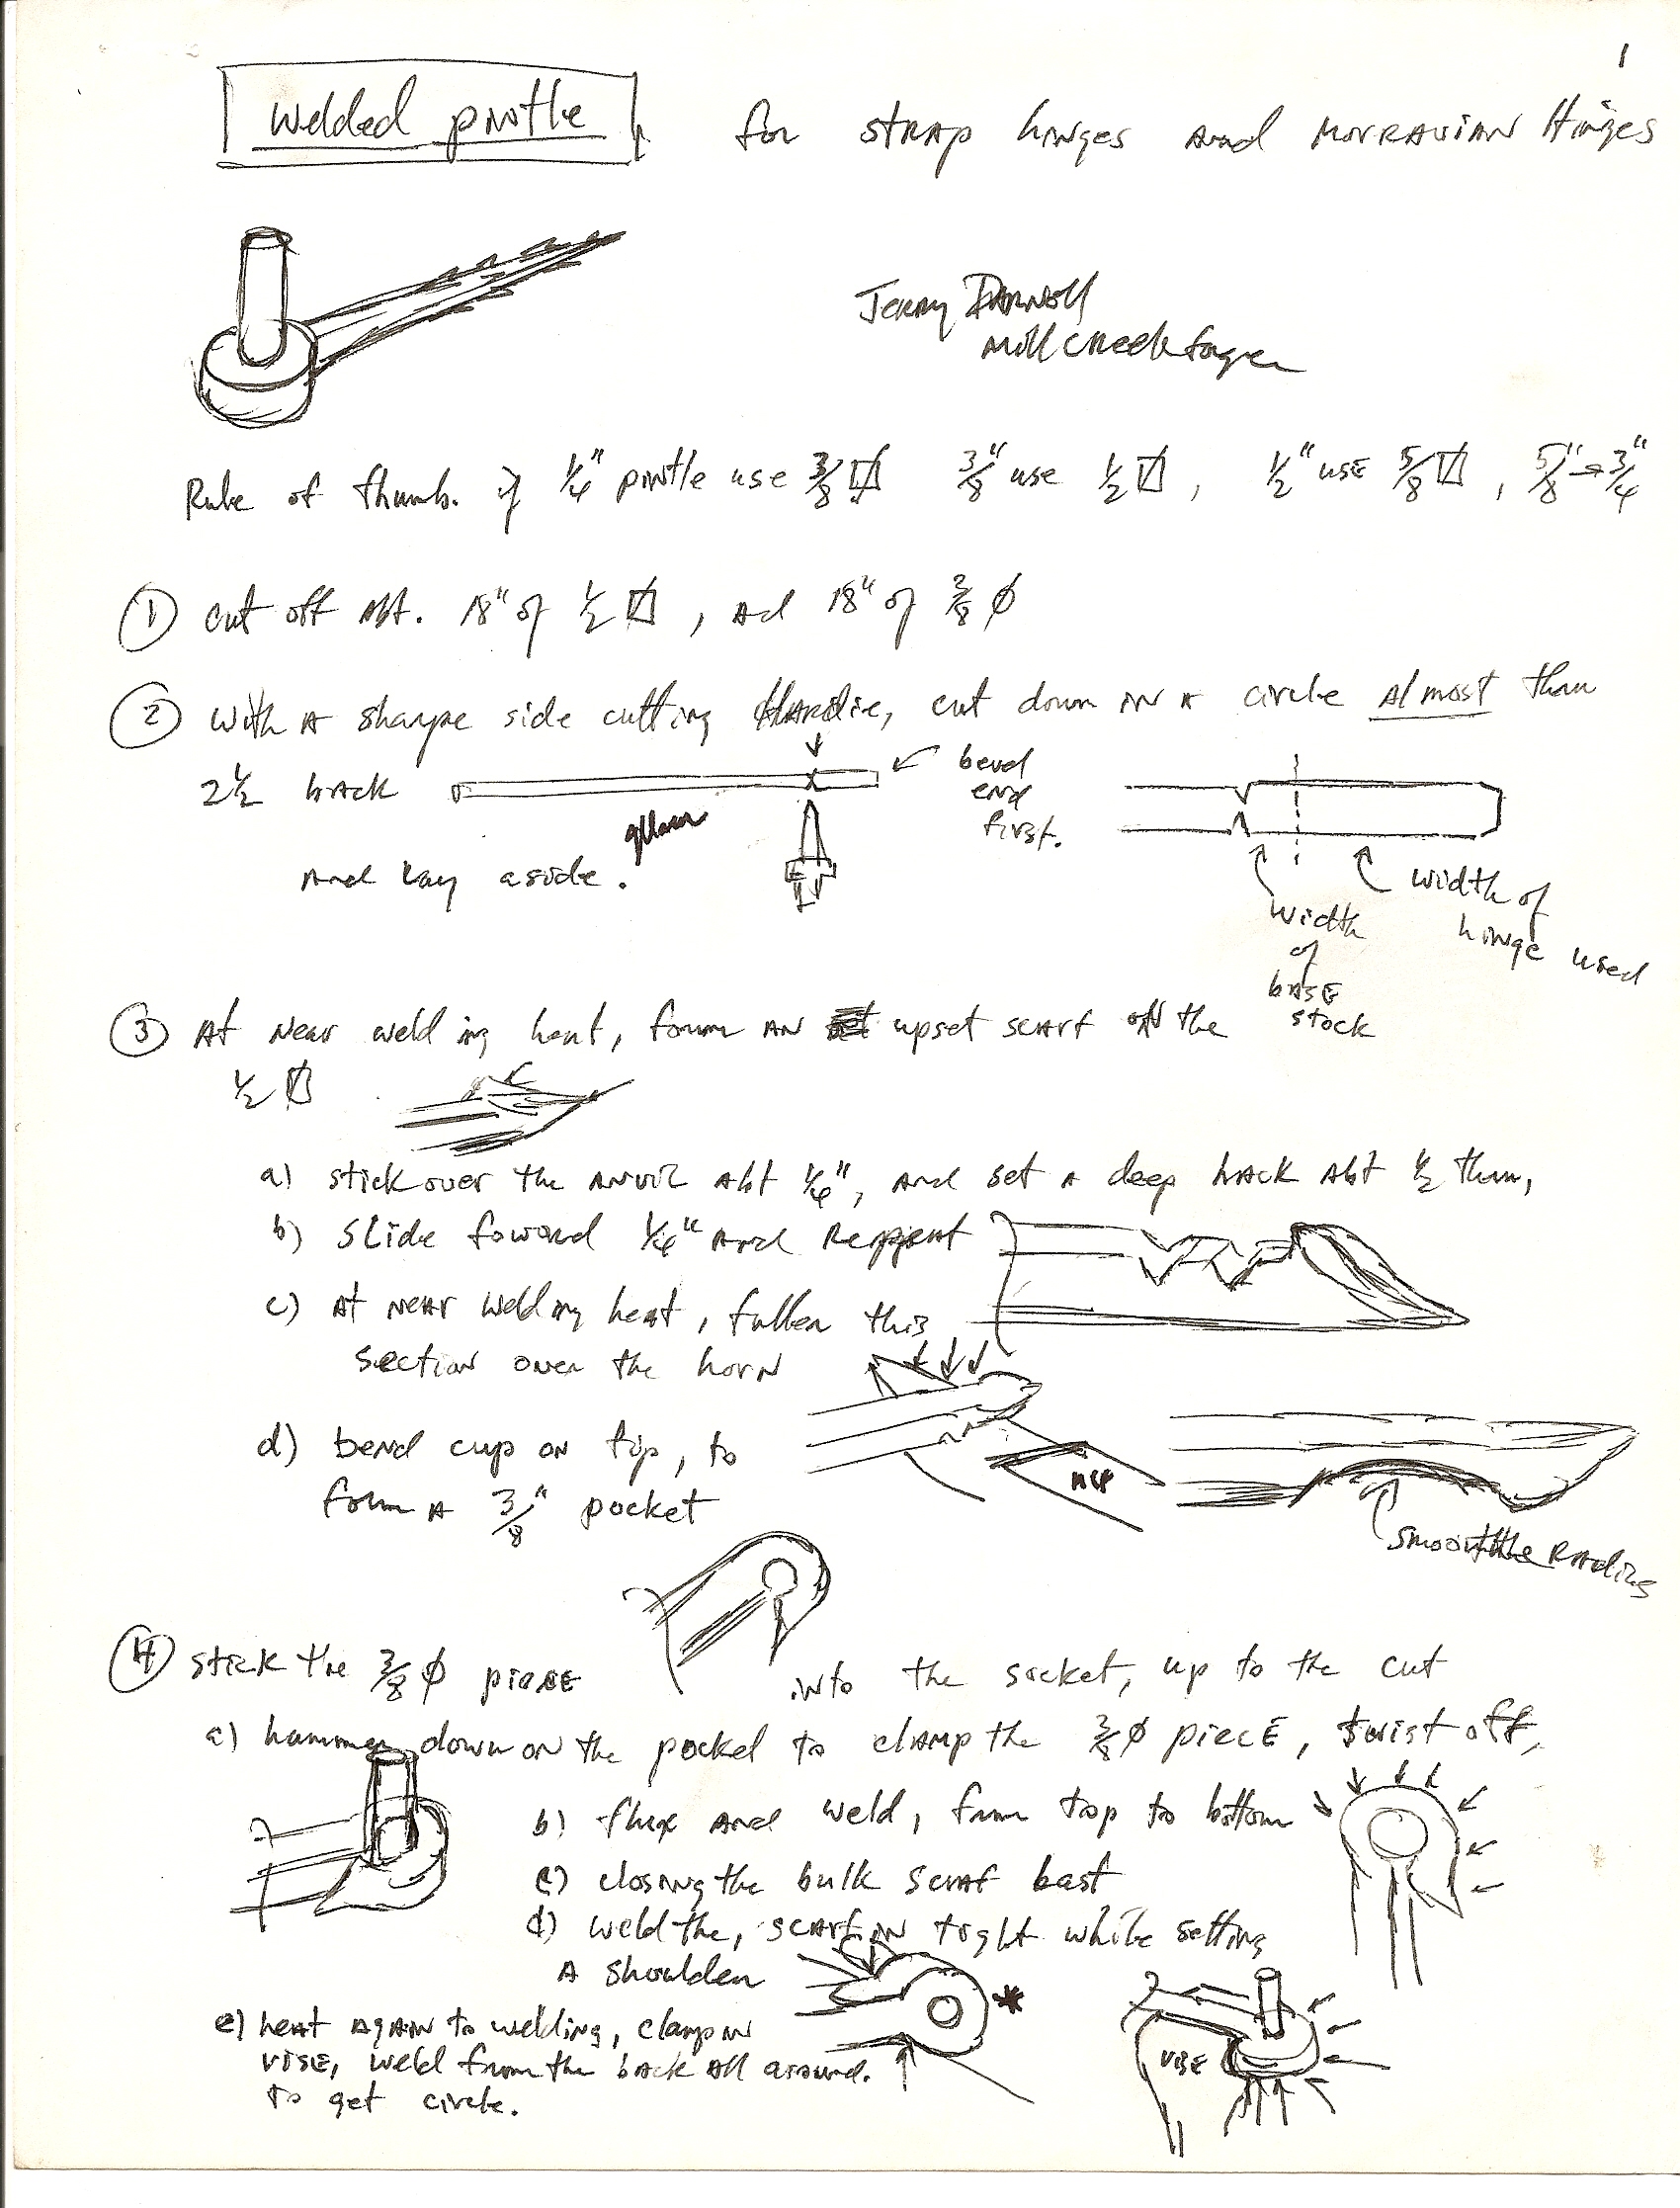 1
Welded pintle for strap hinges and Morravian Hinges
Jerry Darnell
Mill Creek forge
Rule of thumb. if 1/4" pintle use 3/8 ☐ 3/8" use 1/2 ☐, 1/2" use 5/8 ☐, 5/8" → 3/4"
① cut off abt. 18" of 1/2 ☐, ad 18" of 3/8 ∅
② with a sharpe side cutting Hardie, cut down in a circle almost thru
2 1/2 back
bevel
end
first.
and lay aside.
width
of
base
stock
width of
hinge used
③ At near welding heat, form an upset scarf on the
1/2 ☐
a) stick over the anvil abt 1/4", and set a deep hack abt 1/2 thru,
b) slide foward 1/4" and Reppeat
c) at near welding heat, fuller this
section over the horn
d) bend cup on tip, to
form a 3/8" pocket
smooth the Radius
④ stick the 3/8 ∅ piece into the socket, up to the cut
a) hammer down on the pocket to clamp the 3/8 ∅ piece, twist off,
b) flux and weld, from top to bottom
c) closing the bulk scraf
d) weld the, scarf in tight while setting
a shoulder
*
e) heat again to welding, clamp in
vise, weld from the back all around.
to get circle.
vise